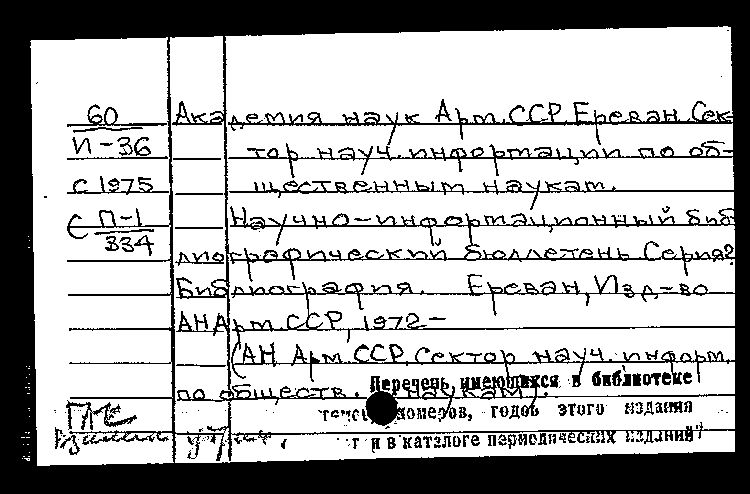 60 Академия наук Арм. ССР. Ереван. Сек-
И-36 тор науч. информации по об-
с 1975 щественным наукам.
С П-1 Научно-информационный биб-
334 лиографический бюллетень Серия?
Библиография. Ереван, Изд-во
АН Арм. ССР, 1972-
(АН Арм. ССР. Сектор науч. информ.
по обществ. наукам).
Перечень, имеющихся в библиотеке
номеров, годов этого издания
и в каталоге периодических изданий